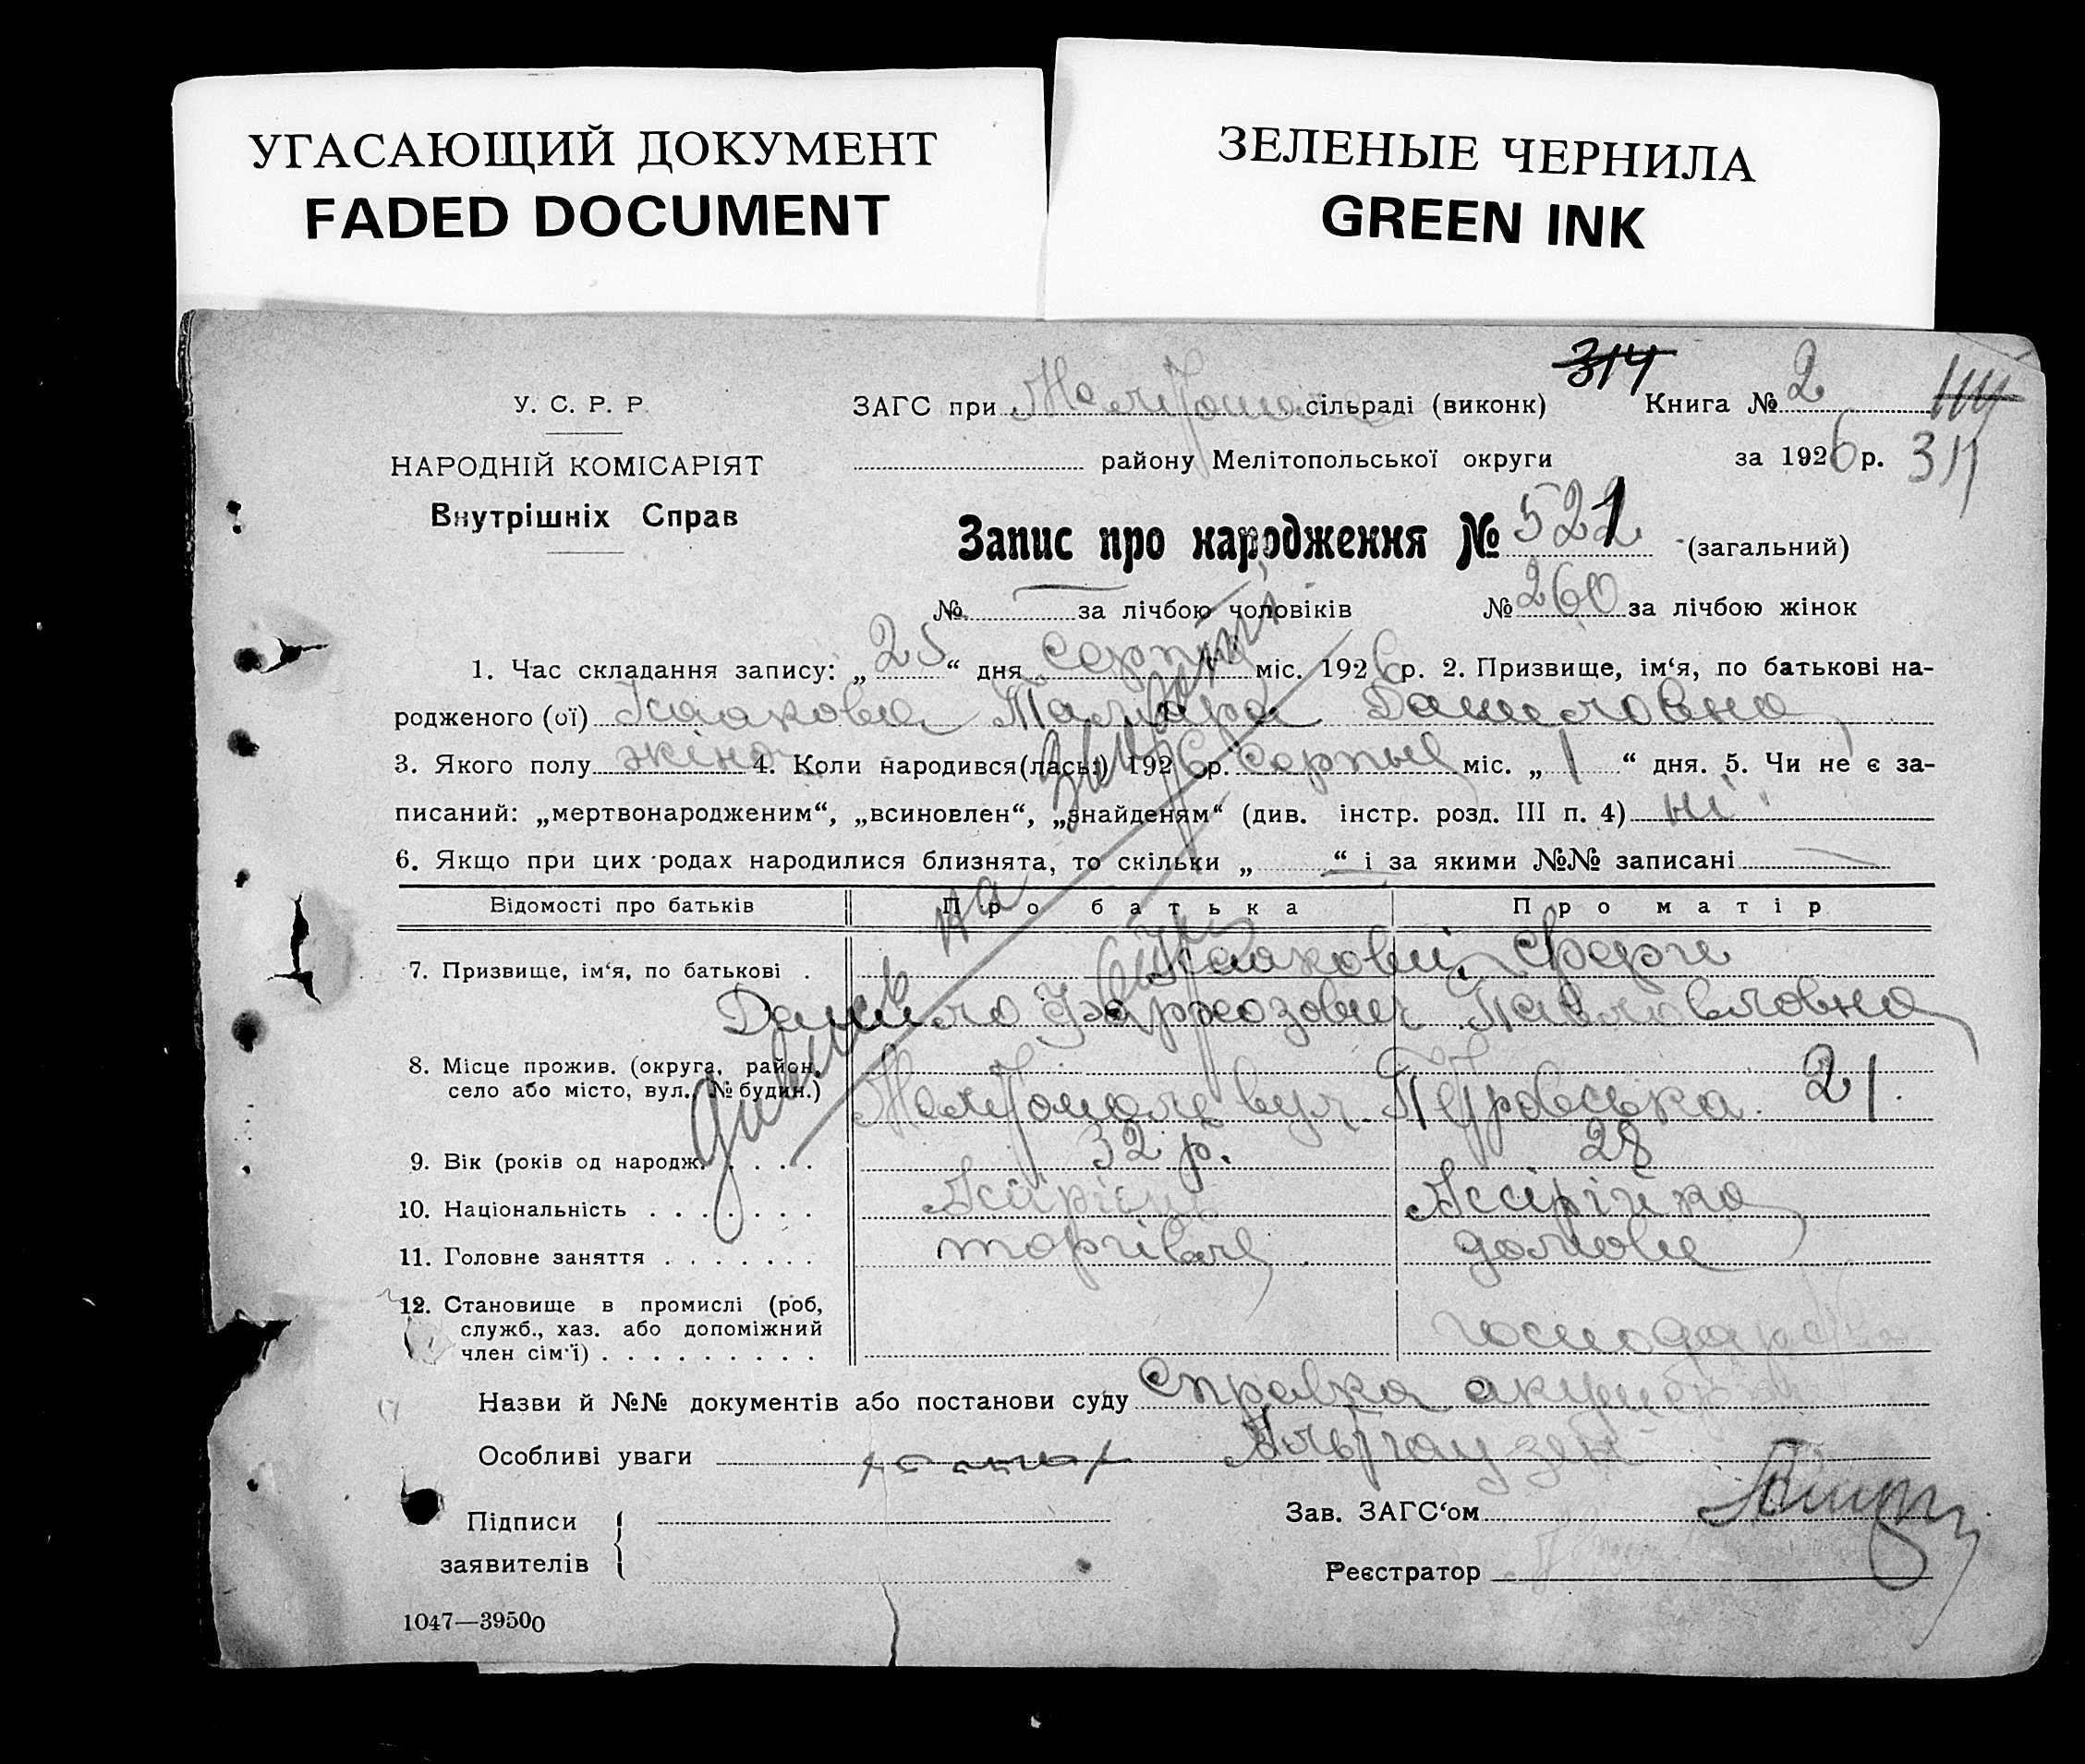 УГАСАЮЩИЙ ДОКУМЕНТ
FADED DOCUMENT
ЗЕЛЕНЫЕ ЧЕРНИЛА
GREEN INK
314
У. С. Р. Р.
НАРОДНІЙ КОМІСАРІЯТ
Внутрішніх Справ
ЗАГС при сільраді (виконк) Книга № 2
району Мелітопольської округи за 1926 р. 311
Запис про народження № 521 (загальний)
№ за лічбою чоловіків № 260 за лічбою жінок
1. Час складання запису: „25“ дня серпня міс. 1926 р. 2. Призвище, ім‘я, по батькові на-
родженого (ої) Ісаакова Тамара Даниловна
3. Якого полу жіноч. 4. Коли народився(лась) 1926 р. серпня міс. „1“ дня. 5. Чи не є за-
писаний: „мертвонародженим“, „всиновлен“, „знайденям“ (див. інстр. розд. III п. 4) ні
6. Якщо при цих родах народилися близнята, то скільки „ “ і за якими №№ записані
Відомості про батьків Про батька Про матір
7. Призвище, ім‘я, по батькові . Ісаакови,
Данило Павловна
8. Місце прожив. (округа, район,
село або місто, вул., № будин.) Мелітополь вул. Петровська 21.
9. Вік (років од народж. . . . . 32 р. 28
10. Національність . . . . . . . Асірієць Асірійка
11. Головне заняття . . . . . . . торгівля домове
12. Становище в промислі (роб,
служб., хаз. або допоміжний
член сім‘ї) . . . . . . . . . господарство
Назви й №№ документів або постанови суду Справка акушерки
Особливі уваги Альтгаузен
Підписи
заявителів
Зав. ЗАГС‘ом
Реєстратор
1047—39500
дивись на звороті